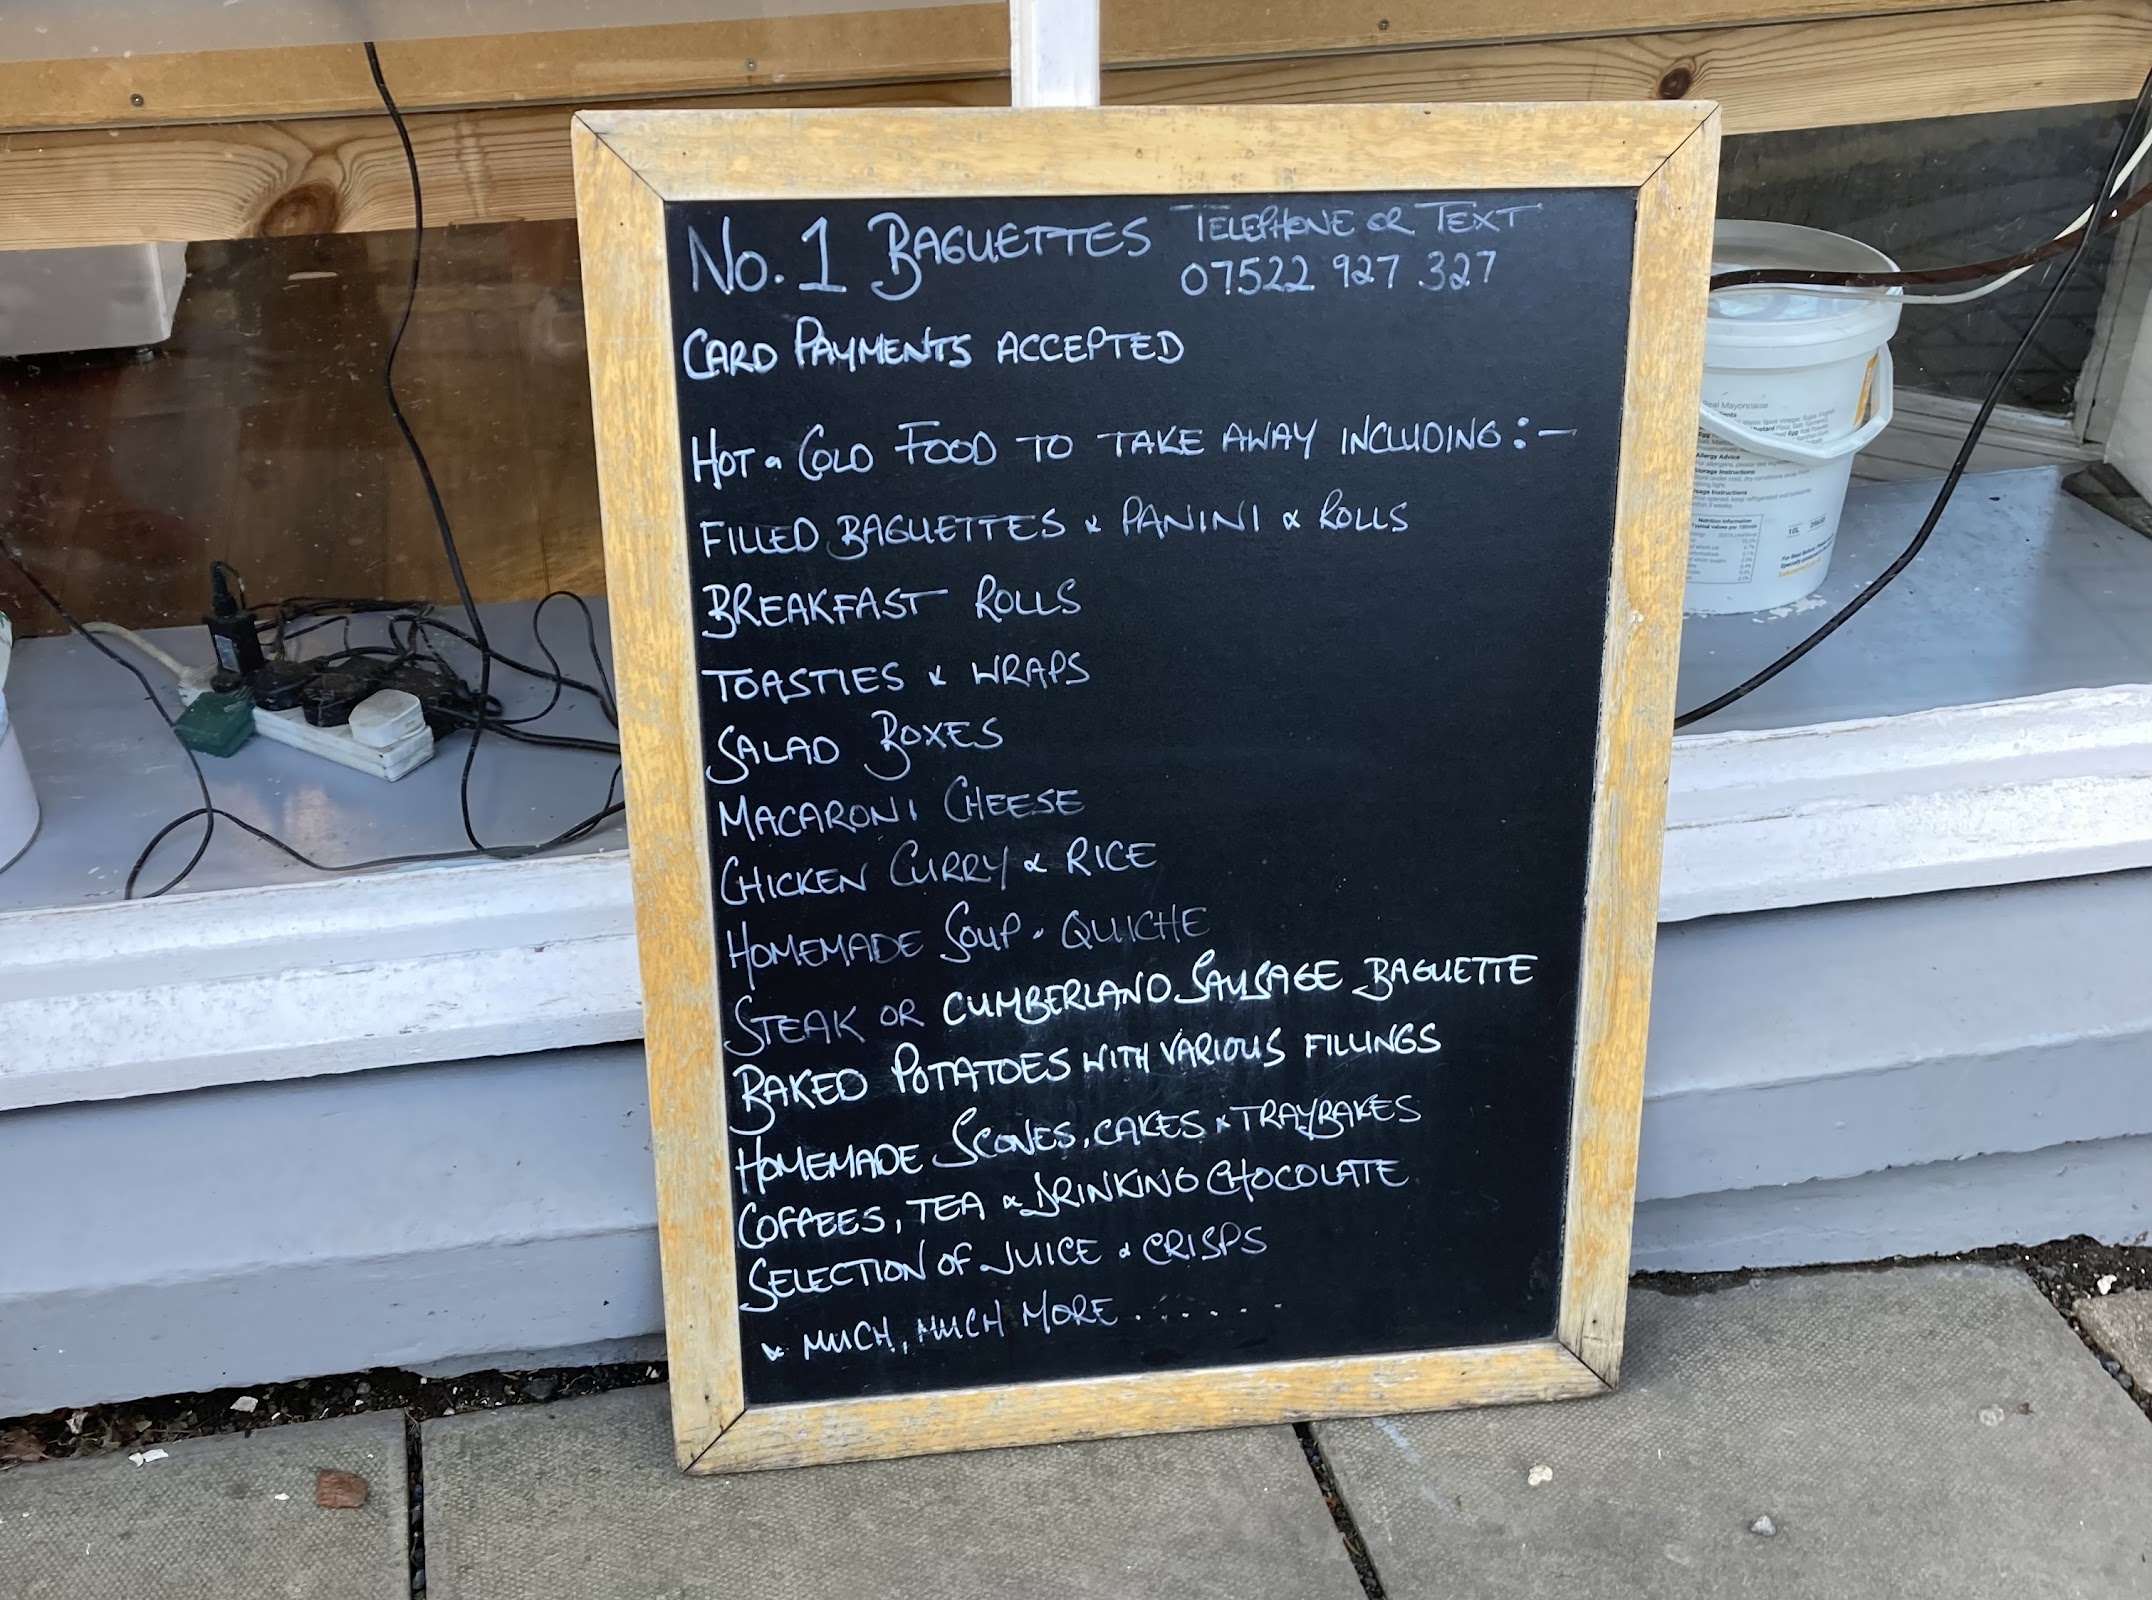 No. 1 BAGUETTES TELEPHONE OR TEXT
07522 927 327
CARD PAYMENTS ACCEPTED
HOT & COLD FOOD TO TAKE AWAY INCLUDING :-
FILLED BAGUETTES & PANINI & ROLLS
BREAKFAST ROLLS
TOASTIES & WRAPS
SALAD BOXES
MACARONI CHEESE
CHICKEN CURRY & RICE
HOMEMADE SOUP. QUICHE
STEAK OR CUMBERLAND SAUSAGE BAGUETTE
BAKED POTATOES WITH VARIOUS FILLINGS
HOMEMADE SCONES, CAKES & TRAYBAKES
COFFEES, TEA & DRINKING CHOCOLATE
SELECTION OF JUICE & CRISPS
& MUCH, MUCH MORE.......
Real Mayonnaise
Allergy Advice
Storage Instructions
Usage Instructions
Nutrition Information
10L